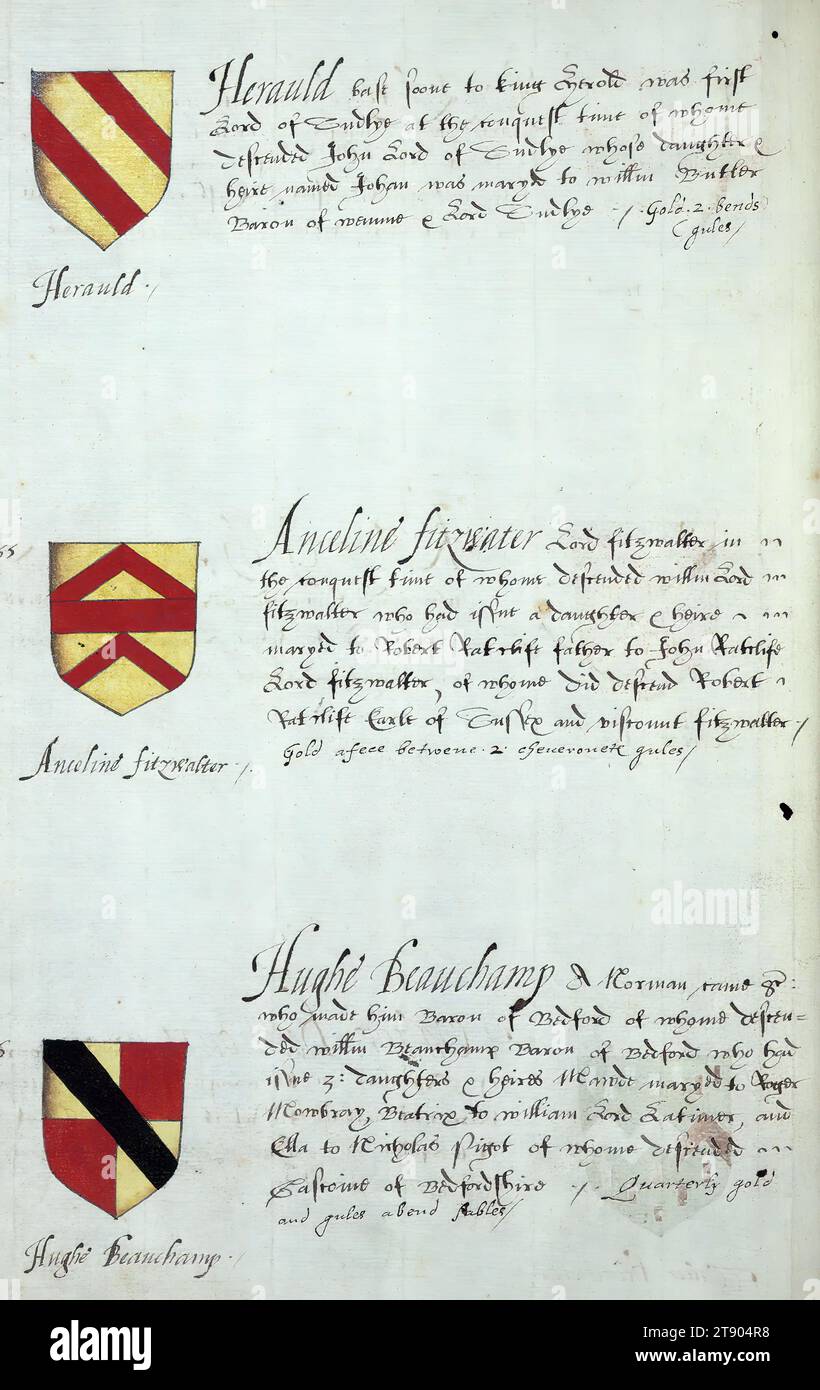 Herauld base soone to king Herold was first
Lord of Sudlye at the conquest time of whome
descended John Lord of Sudlye whose daughter &
heire named Johan was maryd to willm Butler
Baron of wemme & Lord Sudlye /. Gold .2. bends
gules /
Herauld ./
55
Anceline fitzwater Lord fitzwalter in
the conquest time of whome descended willm Lord
fitzwalter who had issue a daughter & heire
maryed to Robert Ratclift father to John Ratclife
Lord fitzwalter, of whome did descend Robert
Ratclift Earle of Sussex and viscount fitzwalter /
Gold a fece betwene .2. cheveronetts gules /
Anceline fitzwalter ./.
Hughe Beauchamp A Norman came &c:
who made him Baron of Bedford of whome descen=
ded willm Beauchamp Baron of Bedford who had
issue 3: daughters & heires Mawde maryed to Roger
Mowbray, Beatrix to william Lord Latimer, and
Ella to Nicholas pigot of whome descended
Gascoine of Bedfordshire /. Quarterly gold
and gules a bend sables /
Hughe Beauchamp .
alamy
alamy
Image ID: 2T904R8
www.alamy.com